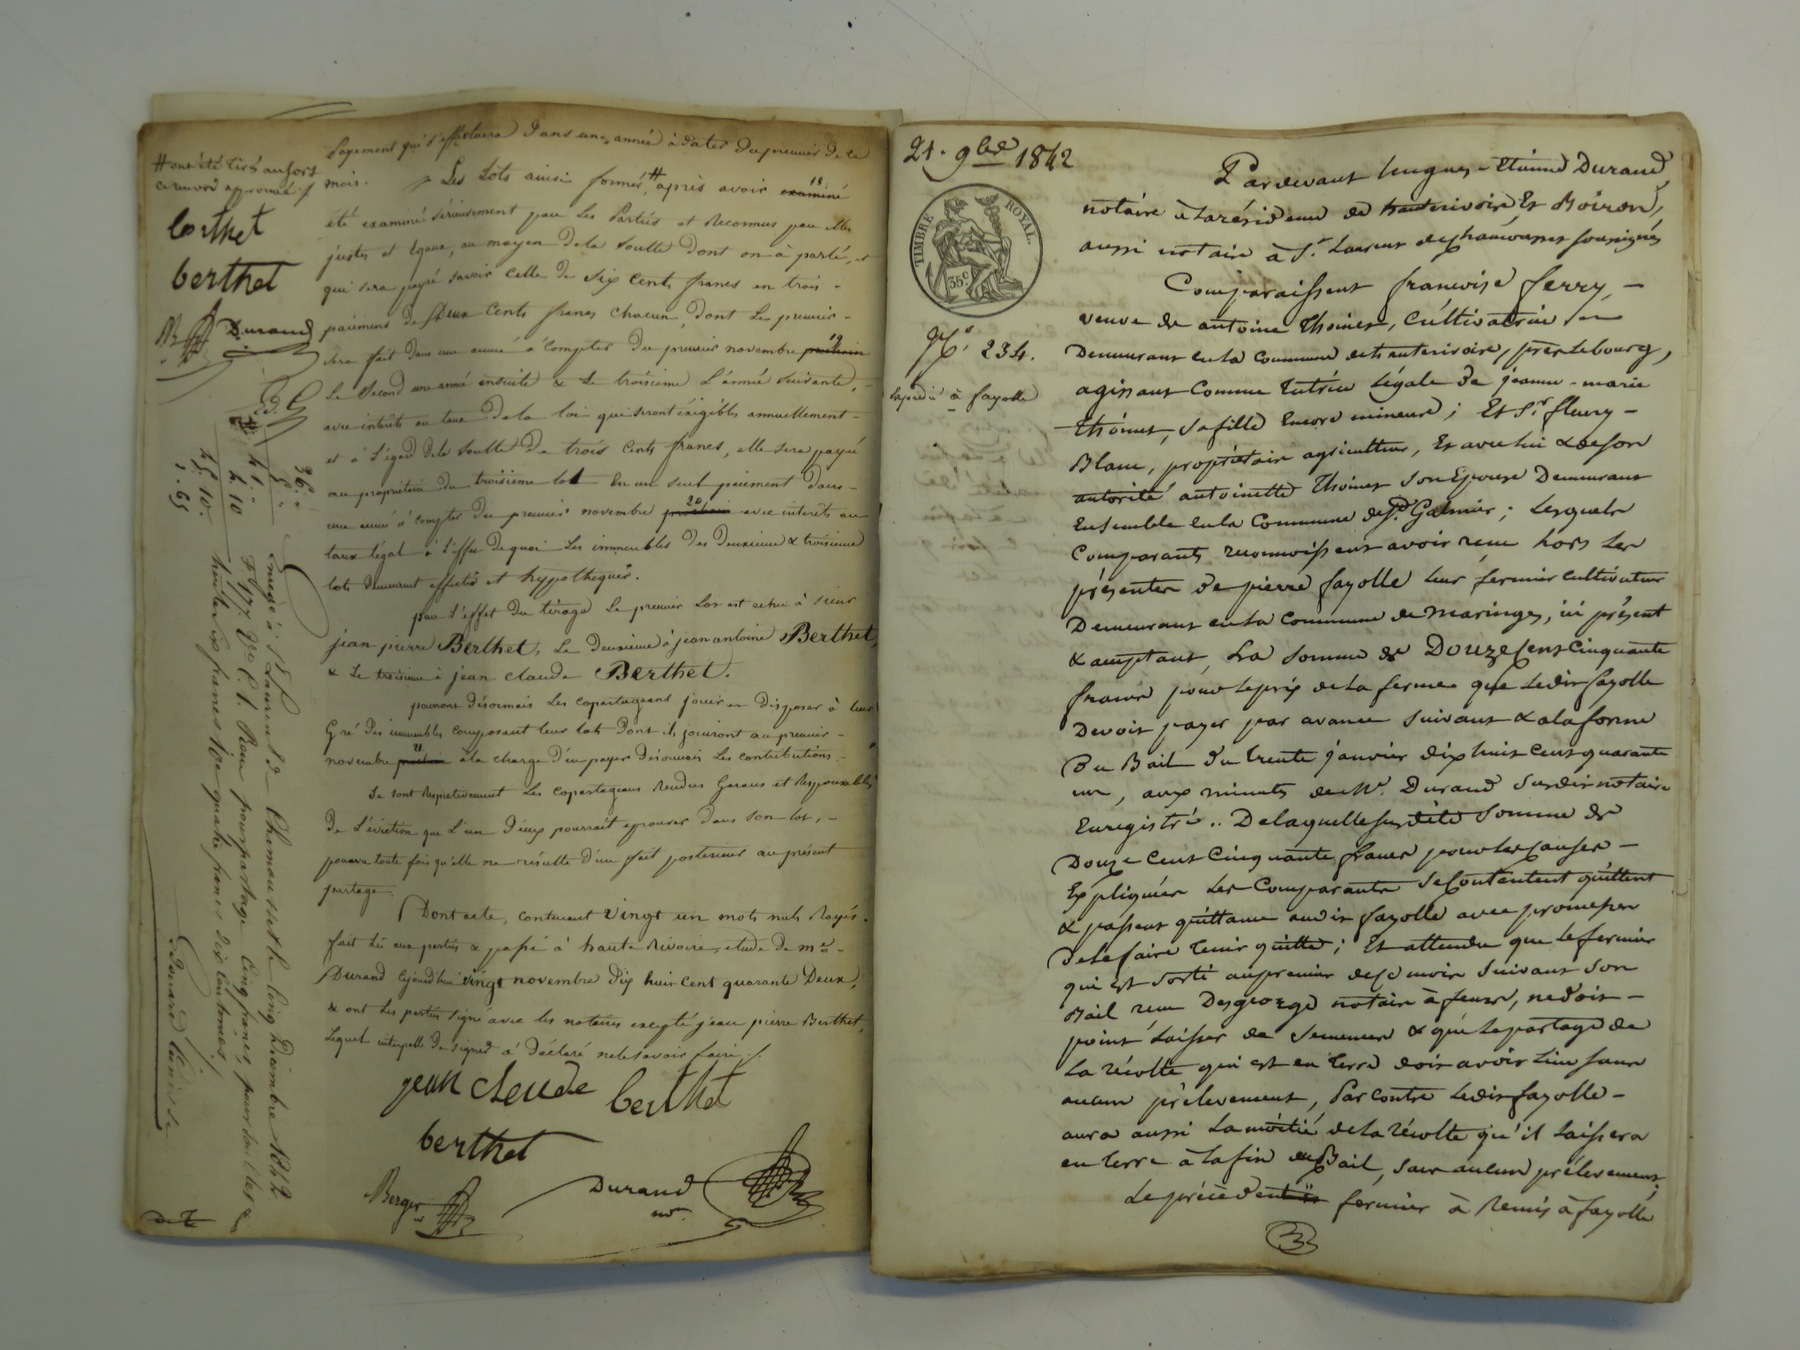 payement qui s'effectuera dans une année à dater du premier de ce
mois. Les Lots ainsi formés, # après avoir examiné
été examiné sérieusement par les Parties et reconnus par elles
justes et égaux, au moyen de la soulte dont on à parlé, et
qui sera payé savoir celle de six cents francs en trois -
paiemens de Deux Cents francs chacun, dont Le premier -
sera fait dans une année à compter du premier novembre prochain
Le second une année ensuite & le troisième L'année suivante, -
avec intérêts au taux de la loi qui seront exigibles annuellement -
et à L'égard de la soulte de trois Cents francs, elle sera payé
au propriétaire du troisième lot En un seul paiement dans -
une année à compter du premier novembre prochain avec intérêts au
taux légal à l'effet de quoi Les immeubles des deuxième & troisième
lots demeurent affectés et hypothéqués.
par l'effet du tirage Le premier Lot est echu à sieur
jean pierre Berthet, Le deuxième à jean antoine Berthet,
& Le troisième à jean claude Berthet.
pourront désormais Les copartageans jouir et disposer à leur
Gré des immeubles composant leur lots dont ils jouiront au premier -
novembre prochain à la charge d'en payer désormais Les contributions. -
Se sont respectivement Les copartageans rendus Garans et Responsables
De L'éviction que L'un D'eux pourrait eprouver dans son lot, -
pourvu toute fois qu'elle ne résulte d'un fait postérieur au présent
partage.
Dont acte, contenant vingt un mots nuls Rayés.
fait Lu aux parties & passé à haute Rivoire, etude de me -
Durand Cejourd'hui vingt novembre Dix huit Cent quarante Deux,
& ont Les parties signé avec les notaires excepté jean pierre Berthet,
Lequel interpellé de signer à déclaré ne le savoir faire ./.
jean cleude berthet
berthet
Berger
Durand
nre
# ont été tirés au sort
ce renvoi approuvé ./.
berthet
berthet
Durand
36. "
41. -
4. 10
45. 10.
1. 65
Enregé à St Laurent de Chamousset le Cinq Décembre 1842
fo 177 Vo C. 1. Reçu pour partage Cinq francs, pour soultes
trente six francs & pour décime quatre francs dix centimes
21. 9bre 1842
TIMBRE ROYAL.
35c
No. 234.
à fayolle
Pardevant hugues - Etienne Durand,
notaire à la résidence de hauterivoire Et Boiron,
aussi notaire à St. Laurent de chamousset soussignés
Comparaissent francoise ferry, -
veuve de antoine Thoinet, Cultivatrice
Demeurant en la Commune de hauterivoire, près le bourg,
agissant Comme Tutrice Légale de jeanne - marie
Thoinet, sa fille Encore mineure ; Et Sr. fleury -
Blanc, propriétaire agriculteur, Et avec lui & de son
autorité antoinette Thoinet son Epouse Demeurant
Ensemble en la Commune de St. Galmier ; Lesquels
Comparants reconnoissent avoir reçu hors Les
présentes de pierre fayolle leur fermier cultivateur
Demeurant en la Commune de maringes, ici présent
& acceptant, La somme de Douze Cent Cinquante
francs pour le prix de la ferme que Ledit fayolle
Devoit payer par avance suivant & à la forme
Du Bail du trente janvier dix huit Cent quarante
un, aux minutes de Me. Durand susdit notaire
Enregistré .. De laquelle susdite somme de
Douze Cent Cinquante francs pour les causes -
Expliquées Les Comparants se Contentent quittent
& passent quittance audit fayolle avec promesse
De le faire tenir quitte ; Et attendu que le fermier
qui Est sorti au premier de ce mois suivant son
Bail reçu Desgeorge notaire à feurs, ne doit -
point Laisser de semence & que le partage de
La récolte qui est en terre doit avoir lieu sans
aucun prélevement, Par contre Ledit fayolle -
aura aussi La moitié de La récolte qu'il laissera
en terre à la fin du Bail, sans aucun prélevement ;
Le précèdent fermier à Remis à fayolle